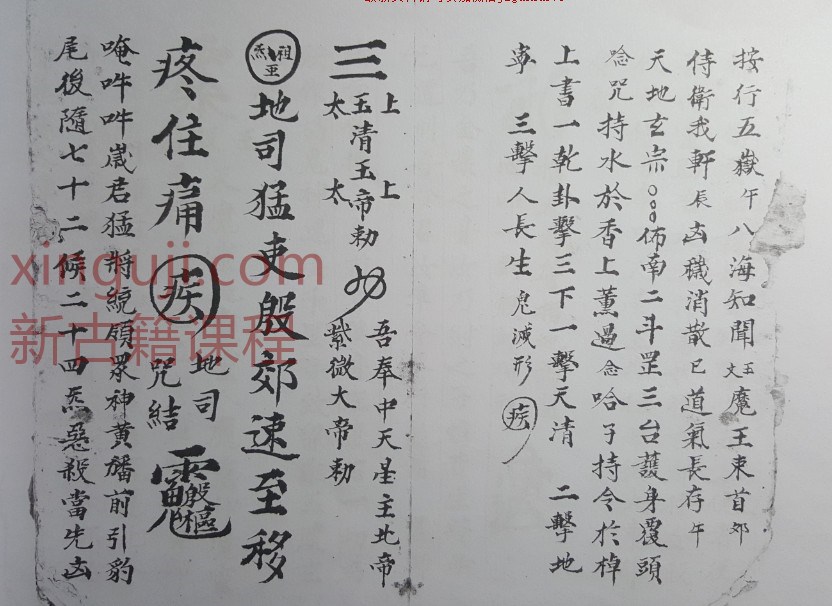 按行五嶽午八海知聞 玉文 魔王束首 卯
侍衛我軒辰凶穢消散巳道氣長存午
天地玄宗佈南二斗罡三台護身覆頭
唸咒持水於香上薰過念哈子持令於棹
上書一乾卦擊三下一擊天清 二擊地
寧 三擊人長生鬼滅形
吾奉中天星主北帝
紫微大帝勅
三
上 玉 太
清
上 玉 太
帝勅
祖炁
地司猛吏殷郊速至移
疼住痛 地司
咒結
唵吽吽嵗君猛將統領眾神黃旛前引豹
尾後隨七十二候二十四炁惡殺當先凶
xinguji.com
新古籍课程